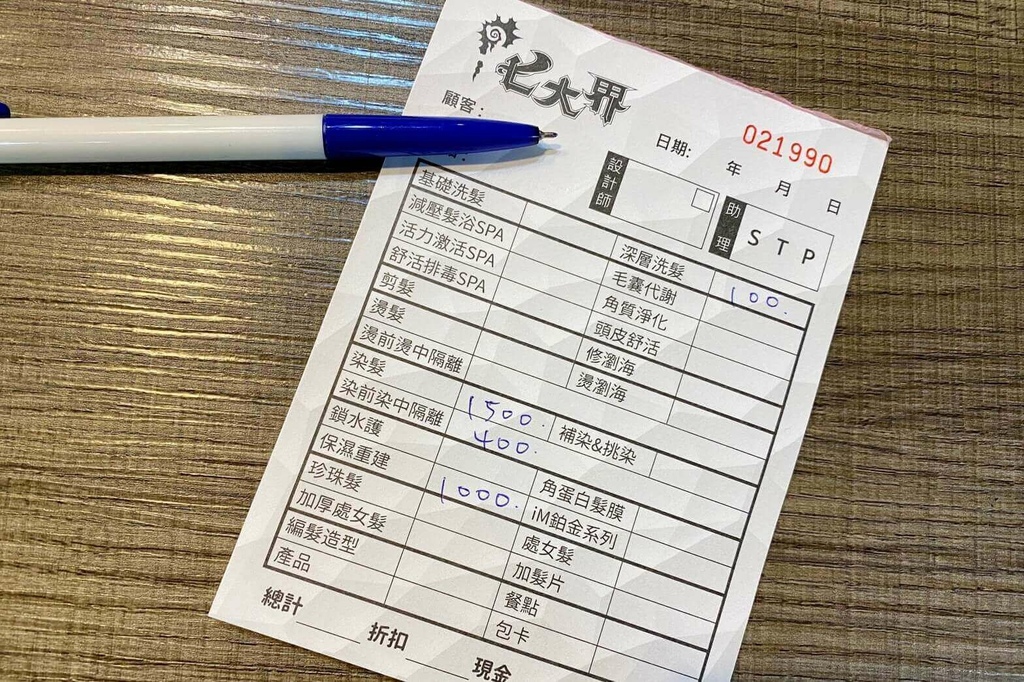 七大界
顧客：
日期: 年 月 日
021990
設計師
助理 STP
基礎洗髮 深層洗髮 100.
減壓髮浴SPA 毛囊代謝
活力激活SPA 角質淨化
舒活排毒SPA 頭皮舒活
剪髮 修瀏海
燙髮 燙瀏海
燙前燙中隔離
染髮 1500. 補染&挑染
染前染中隔離 400.
鎖水護 角蛋白髮膜
保濕重建 1000. iM鉑金系列
珍珠髮 處女髮
加厚處女髮 加髮片
編髮造型 餐點
產品 包卡
總計 折扣 現金